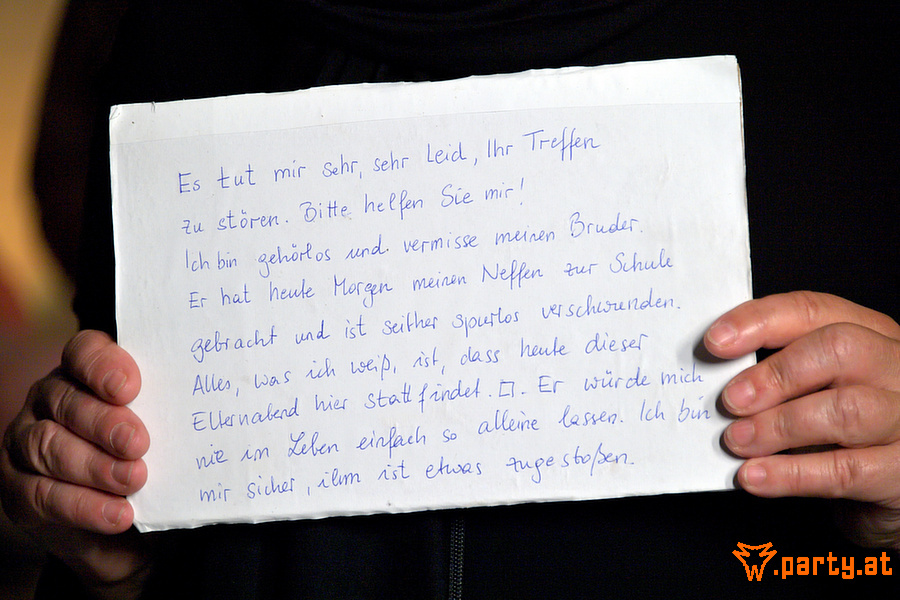 Es tut mir sehr, sehr Leid, Ihr Treffen
zu stören. Bitte helfen Sie mir!
Ich bin gehörlos und vermisse meinen Bruder.
Er hat heute Morgen meinen Neffen zur Schule
gebracht und ist seither spurlos verschwunden.
Alles, was ich weiß, ist, dass heute dieser
Elternabend hier stattfindet. □. Er würde mich
nie im Leben einfach so alleine lassen. Ich bin
mir sicher, ihm ist etwas zugestoßen.
.party.at